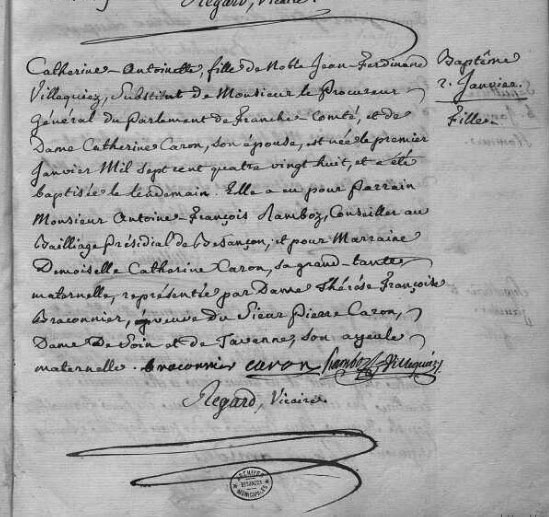 Regard, Vicaire.
Catherine-Antoinette, fille de Noble Jean-Ferdinand
Villequiez, Substitut de Monsieur le Procureur
Général du Parlement de Franche-Comté, et de
Dame Catherine Caron, son épouse, est née le premier
Janvier Mil Sept cent quatre vingt huit, et a été
baptisée le lendemain. Elle a eu pour Parrain
Monsieur Antoine-François Ramboz, Conseiller au
Bailliage Présidial de Besançon, et pour Marraine
Demoiselle Catherine Caron, sa grand-tante
maternelle, représentée par Dame Thérèse Françoise
Braconnier, épouse du Sieur Pierre Caron,
Dame De Soin et de Tavenne, son ayeule
maternelle. braconnier caron Ramboz Villequiez
Regard, Vicaire.
Baptême
2. Janvier.
Fille
ARCHIVES
BESANÇON
MUNICIPALES